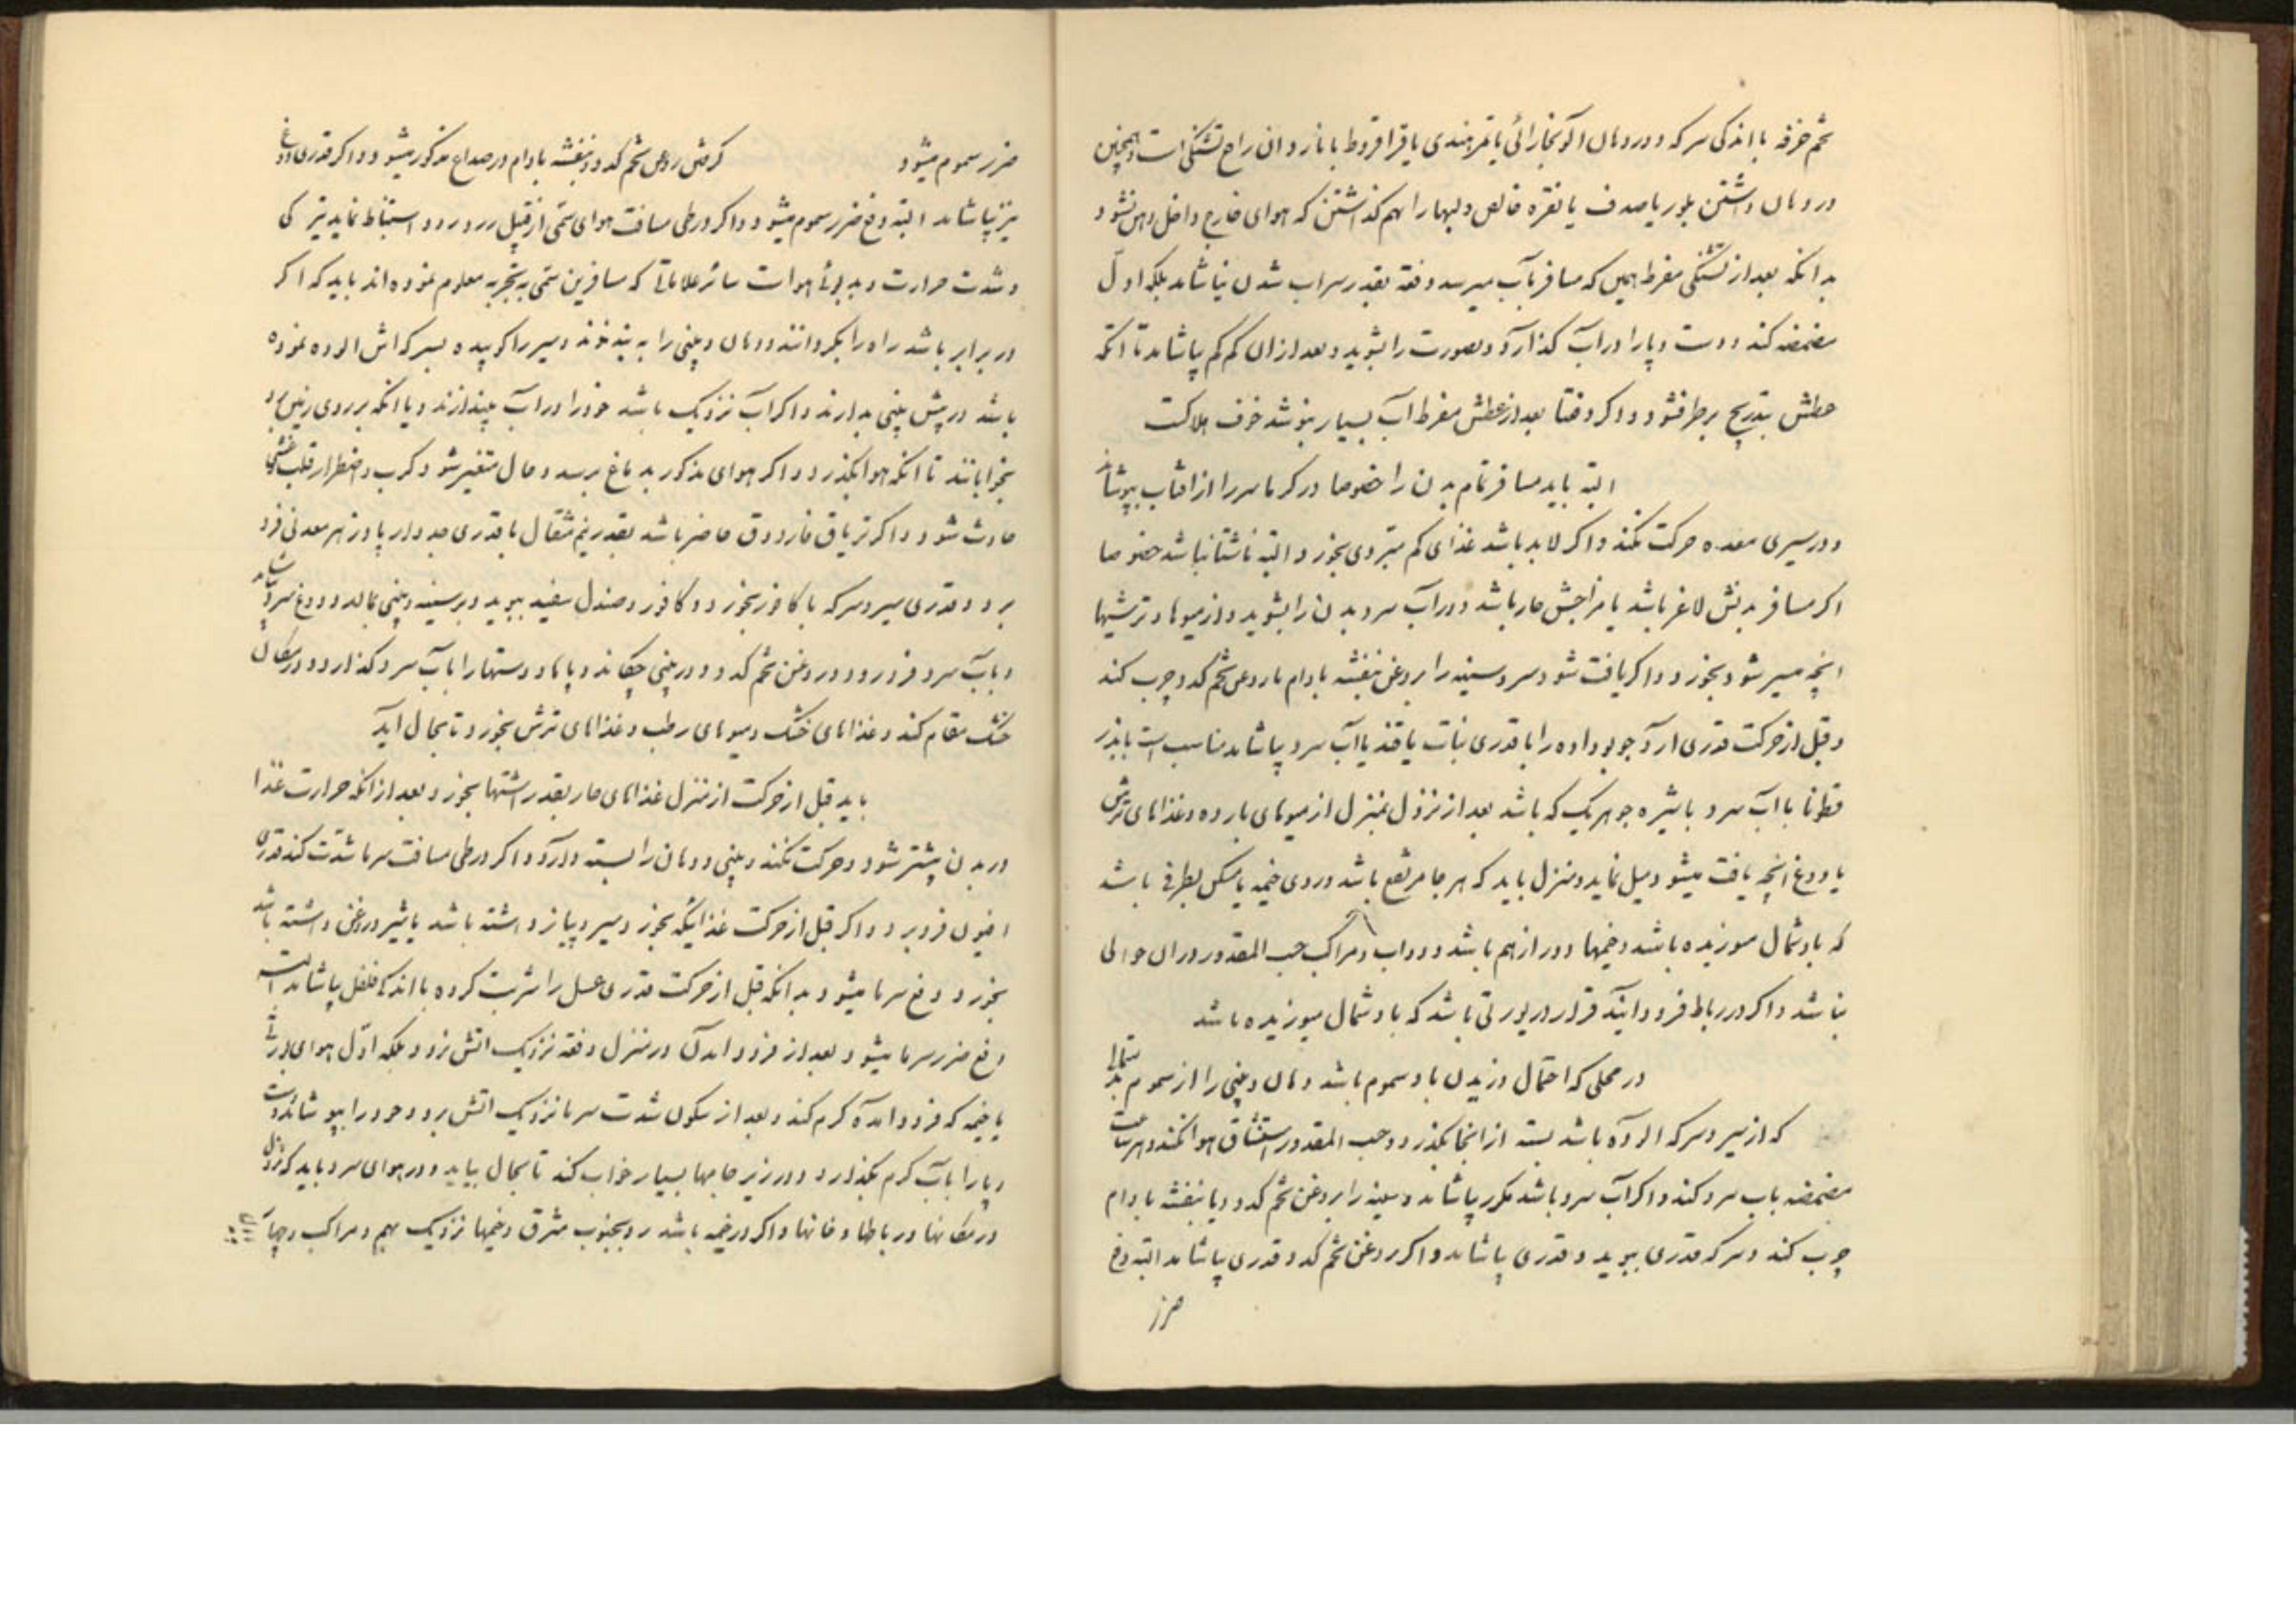 تخم خرفه با اندکی سرکه و در دهان آلو بخارائی یا تمر هندی یا قراقروط با نار دان رافع تشنکی است و همچنین
در دهان داشتن بلور یا صدف یا نقره خالص و لبها را بهم کذاشتن که هوای خارج داخل دهن نشود
بدانکه بعد از تشنکی مفرط همین که مسافر بآب میرسد دفعة بقدر سیراب شدن نیاشامد بلکه اول
مضمضه کند و دست و پا را در آب کذارد و صورت را بشوید و بعد از ان کم کم بیاشامد تا انکه
عطش بتدریج برطرف شود و اکر دفعتا بعد از عطش مفرط آب بسیار بنوشد خوف هلاکت
البته باید مسافر تمام بدن را خصوصا در کرما سر را از افتاب بپوشاند
و در سیری معده حرکت نکند و اکر لابد باشد غذای کم مبردی بخورد و البته ناشتا نباشد خصوصا
اکر مسافر بدنش لاغر باشد یا مزاجش حار باشد و در آب سرد بدن را بشوید و از میوها و ترشیها
انچه میسر شود بخورد و اکر یافت شود سر و سینه را بروغن بنفشه بادام یا روغن تخم کدو چرب کند
و قبل از حرکت قدری ارد جو بو داده را با قدری نبات یا قند یا آب سرد بیاشامد مناسب است یا بذر
قطونا با آب سرد یا شیره جو هر یک که باشد بعد از نزول بمنزل از میوهای بارده و غذاهای ترش
یا دوغ انچه یافت میشود میل نماید و منزل باید که هر جا مرتفع باشد و روی خیمه یا مسکن بطرفی باشد
که باد شمال میوزیده باشد و خیمها دور از هم باشد و دواب و مراکب حسب المقدور در ان حوالی
نباشد و اکر در رباط فرود ایند قرار در پورتی باشد که باد شمال میوزیده باشد
در محلی که احتمال وزیدن باد سموم باشد دهان و بینی را از سموم
که از سیر و سرکه الوده باشد بسته از انجا بکذرد و حسب المقدور استنشاق هوا نکند و هر ساعت
مضمضه باب سرد کند و اکر آب سرد باشد مکرر بیاشامد و سینه را بروغن تخم کدو و یا بنفشه بادام
چرب کند و سرکه قدری ببوید و قدری بیاشامد و اکر روغن تخم کدو قدری بیاشامد البته دفع
ضرر
ضرر سموم میشود کرفتن روغن تخم کدو و بنفشه بادام در صداع مذکور میشود و اکر قدری دوغ
نیز بیاشامد البته دفع ضرر سموم میشود و اکر در طی مسافت هوای سمی از قبیل استنباط نماید تیرکی
و شدت حرارت و بدبوئی هواست سائر علاماتی که مسافرین سمی بتجربه معلوم نموده اند باید که اکر
در برابر باشد راه را بکردانند و دهان و بینی را به بندند و سیر را کوبیده بسرکه اش الوده نموده
باشد در پیش بینی بدارند و اکر آب نزدیک باشد خود را در آب بیندازند و یا انکه بر روی زمین
بخوابانند تا انکه هوا بکذرد و اکر هوای مذکور بدماغ برسد و حال متغیر شود کرب و اضطرار قلب غشی
حادث شود و اکر تریاق فاروق حاضر باشد بقدر نیم مثقال یا قدری جدوار یا پادزهر معدنی فرو
برد و قدری سیر و سرکه با کافور بخورد و کافور و صندل سفید ببوید و بر سینه و بینی بمالد و دوغ سرد بیاشامد
و بآب سرد فرو رود و روغن تخم کدو در بینی چکاند و پاها و دستها را بآب سرد کذارد و در مکان
خنک مقام کند و غذاهای خنک و میوهای رطب و غذاهای ترش بخورد تا بحال آید
باید قبل از حرکت از منزل غذاهای حار بقدر اشتها بخورد و بعد از انکه حرارت غذا
در بدن پیشتر شود و حرکت نکند و بینی و دهان را بسته دارد و اکر در طی مسافت سرما شدت کند قدری
افیون فرو برد و اکر قبل از حرکت غذائیکه بخورد و سیر و پیاز داشته باشد یا شیر و روغن داشته باشد
بخورد و دفع سرما میشود بدانکه قبل از حرکت قدری عسل را شربت کرده با اندک فلفل بیاشامد البته
دفع ضرر سرما میشود بعد از فرود امدن در منزل دفعة نزدیک اتش نرود بلکه اول هوای
یا خیمه که فرود امده کرم کند و بعد از سکون شدت سرما نزدیک اتش برود و خود را بپوشاند و دست
و پا را بآب کرم بکذارد و در زیر جامها بسیار خواب کند تا بحال بیاید و در هوای سرد باید که نزول
در مکانها و رباطها و خانها و اکر در خیمه باشد رو بجنوب مشرق و خیمها نزدیک بهم و مراکب و